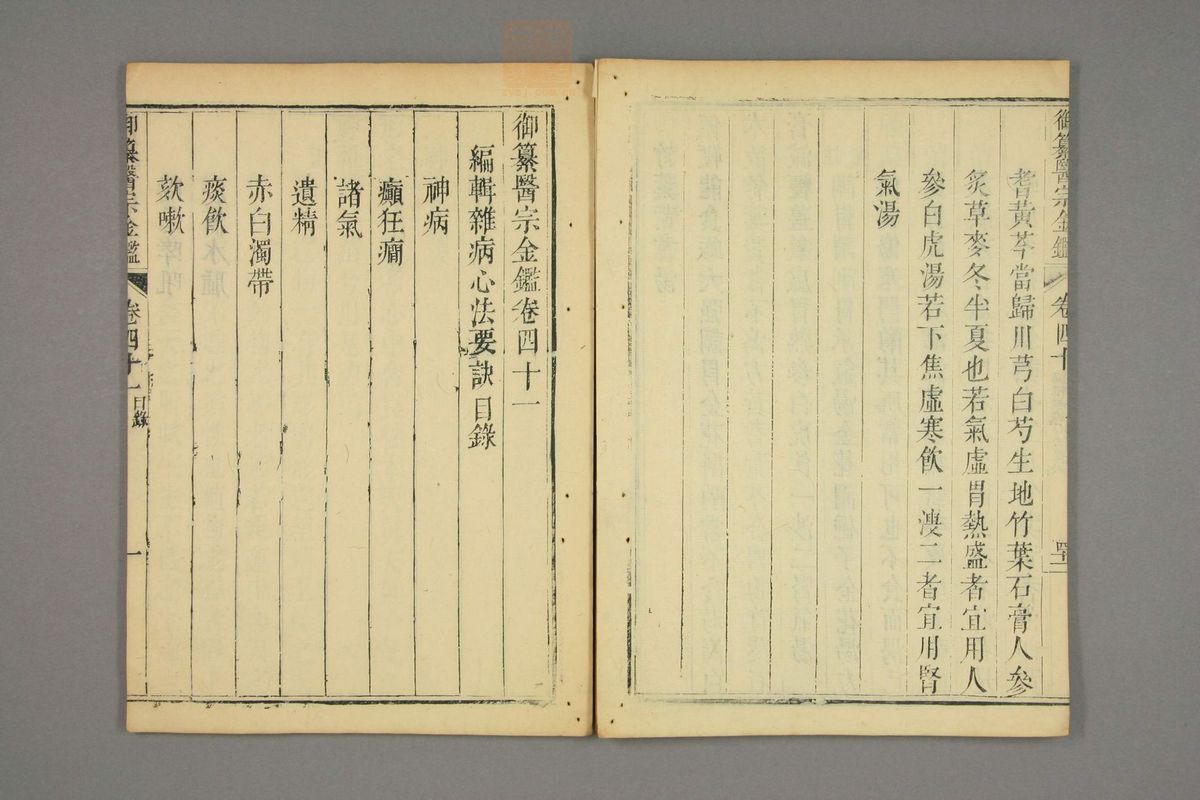 御纂醫宗金鑑 卷四十 四十二
耆黃芩當歸川芎白芍生地竹葉石膏人參
炙草麥冬半夏也若氣虛胃熱盛者宜用人
參白虎湯若下焦虛寒飲一溲二者宜用腎
氣湯
御纂醫宗金鑑卷四十一
編輯雜病心法要訣目錄
神病
癲狂癎
諸氣
遺精
赤白濁帶
痰飲
欬嗽
御纂醫宗金鑑 卷四十一 目錄 一